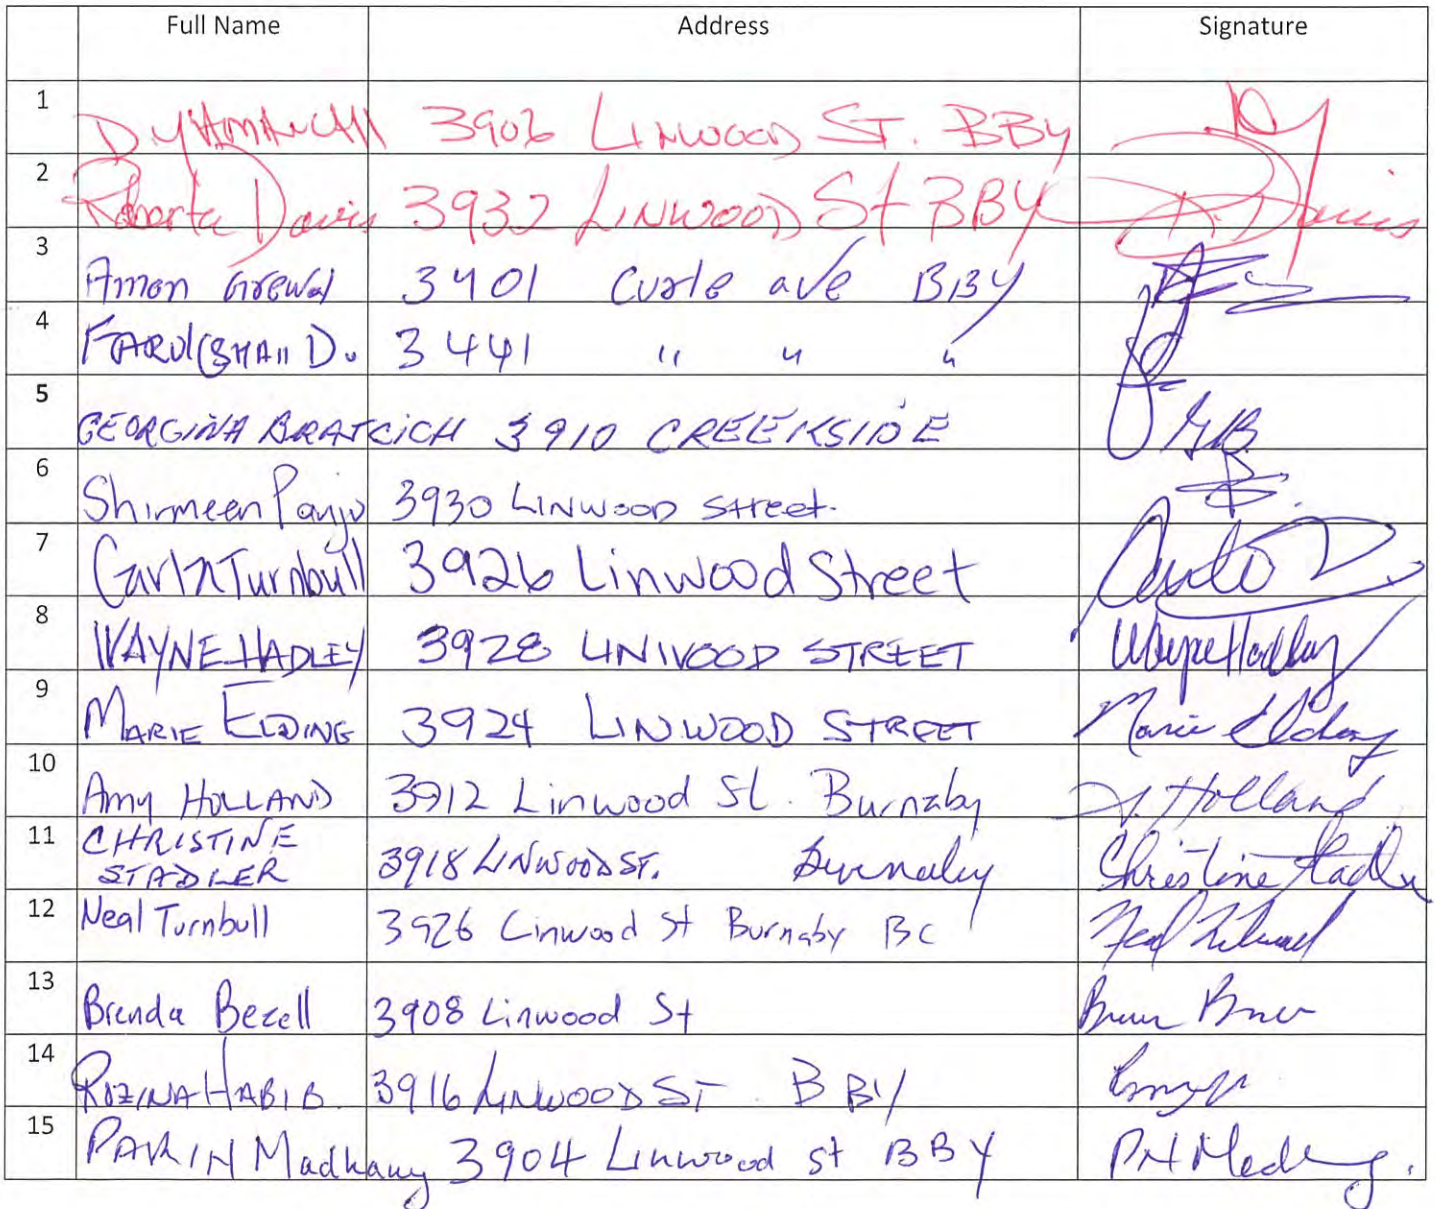 Full Name Address Signature
1 D. YAMAUCHI 3906 LINWOOD ST. BBY
2 Roberta Davis 3932 LINWOOD St BBY R. Davis
3 Aman Grewal 3401 Curle ave BBY
4 D. 3441 " " "
5 GEORGINA BRATCICH 3910 CREEKSIDE GB
6 Shirmeen Panju 3930 LINWOOD street.
7 Carla Turnbull 3926 Linwood Street
8 WAYNE HADLEY 3928 LINWOOD STREET Wayne Hadley
9 MARIE ELDING 3924 LINWOOD STREET Marie Elding
10 Amy HOLLAND 3912 Linwood St. Burnaby A. Holland
11 CHRISTINE
STADLER 3918 LINWOOD ST. Burnaby Christine Stadler
12 Neal Turnbull 3926 Linwood St Burnaby BC Neal Turnbull
13 Brenda Bezell 3908 Linwood St
14 ROZINA HABIB. 3916 LINWOOD ST BBY
15 PARIN Madhany 3904 Linwood st BBY